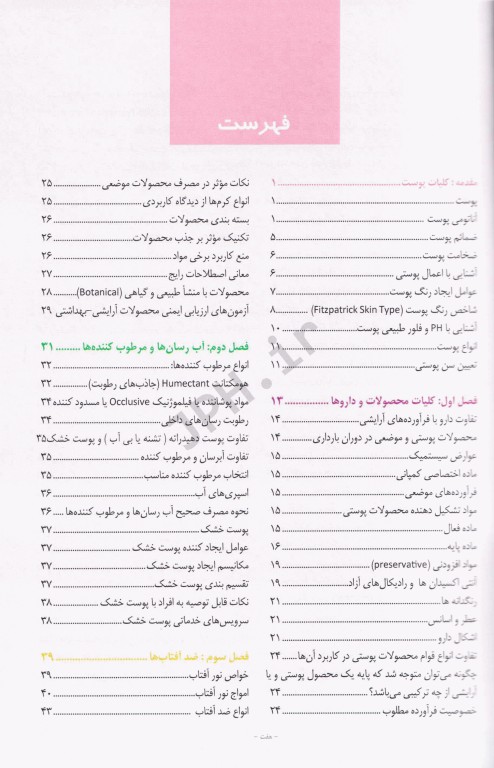 فهرست
مقدمه: کلیات پوست ۱
پوست ۱
آناتومی پوست ۱
ضمائم پوست ۵
ضخامت پوست ۶
آشنایی با اعمال پوستی ۶
عوامل ایجاد رنگ پوست ۷
شاخص رنگ پوست (Fitzpatrick Skin Type) ۸
آشنایی با PH و فلور طبیعی پوست ۱۰
انواع پوست ۱۱
تعیین سن پوستی ۱۱
فصل اول: کلیات محصولات و داروها ۱۳
تفاوت دارو با فرآورده‌های آرایشی ۱۴
محصولات پوستی و موضعی در دوران بارداری ۱۴
عوارض سیستمیک ۱۵
ماده اختصاصی کمپانی ۱۵
فرآورده‌های موضعی ۱۵
مواد تشکیل دهنده محصولات پوستی ۱۵
ماده فعال ۱۵
ماده پایه ۱۶
مواد افزودنی (preservative) ۱۹
آنتی اکسیدان ها و رادیکال‌های آزاد ۱۹
رنگدانه ها ۲۱
عطر و اسانس ۲۱
اشکال دارو ۲۱
تفاوت انواع قوام محصولات پوستی در کاربرد آن‌ها ۲۴
چگونه می‌توان متوجه شد که پایه یک محصول پوستی و یا
آرایشی از چه ترکیبی می‌باشد؟ ۲۴
خصوصیت فرآورده مطلوب ۲۴
نکات مؤثر در مصرف محصولات موضعی ۲۵
انواع کرم‌ها از دیدگاه کاربردی ۲۵
بسته بندی محصولات ۲۶
تکنیک مؤثر بر جذب محصولات ۲۶
منع کاربرد برخی مواد ۲۶
معانی اصطلاحات رایج ۲۷
محصولات با منشأ طبیعی و گیاهی (Botanical) ۲۸
آزمون‌های ارزیابی ایمنی محصولات آرایشی-بهداشتی ۲۹
فصل دوم: آب رسان‌ها و مرطوب کننده‌ها ۳۱
انواع مرطوب کننده‌ها: ۳۲
هومکتانت Humectant (جاذب‌های رطوبت) ۳۲
مواد پوشاننده یا فیلموژنیک Occlusive یا مسدود کننده ۳۴
رطوبت رسان‌های داخلی ۳۴
تفاوت پوست دهیدراته ( تشنه یا بی آب ) و پوست خشک ۳۵
تفاوت آبرسان و مرطوب کننده ۳۵
انتخاب مرطوب کننده مناسب ۳۵
اسپری‌های آب ۳۶
نحوه مصرف صحیح آب رسان‌ها و مرطوب کننده‌ها ۳۶
پوست خشک ۳۷
عوامل ایجاد کننده پوست خشک ۳۷
مکانیسم ایجاد پوست خشک ۳۷
تقسیم بندی پوست خشک ۳۷
نکات قابل توصیه به افراد با پوست خشک ۳۸
سرویس‌های خدماتی پوست خشک ۳۸
فصل سوم: ضد آفتاب‌ها ۳۹
خواص نور آفتاب ۳۹
امواج نور آفتاب ۴۰
انواع ضد آفتاب ۴۳
- هفت -
JPH.ir